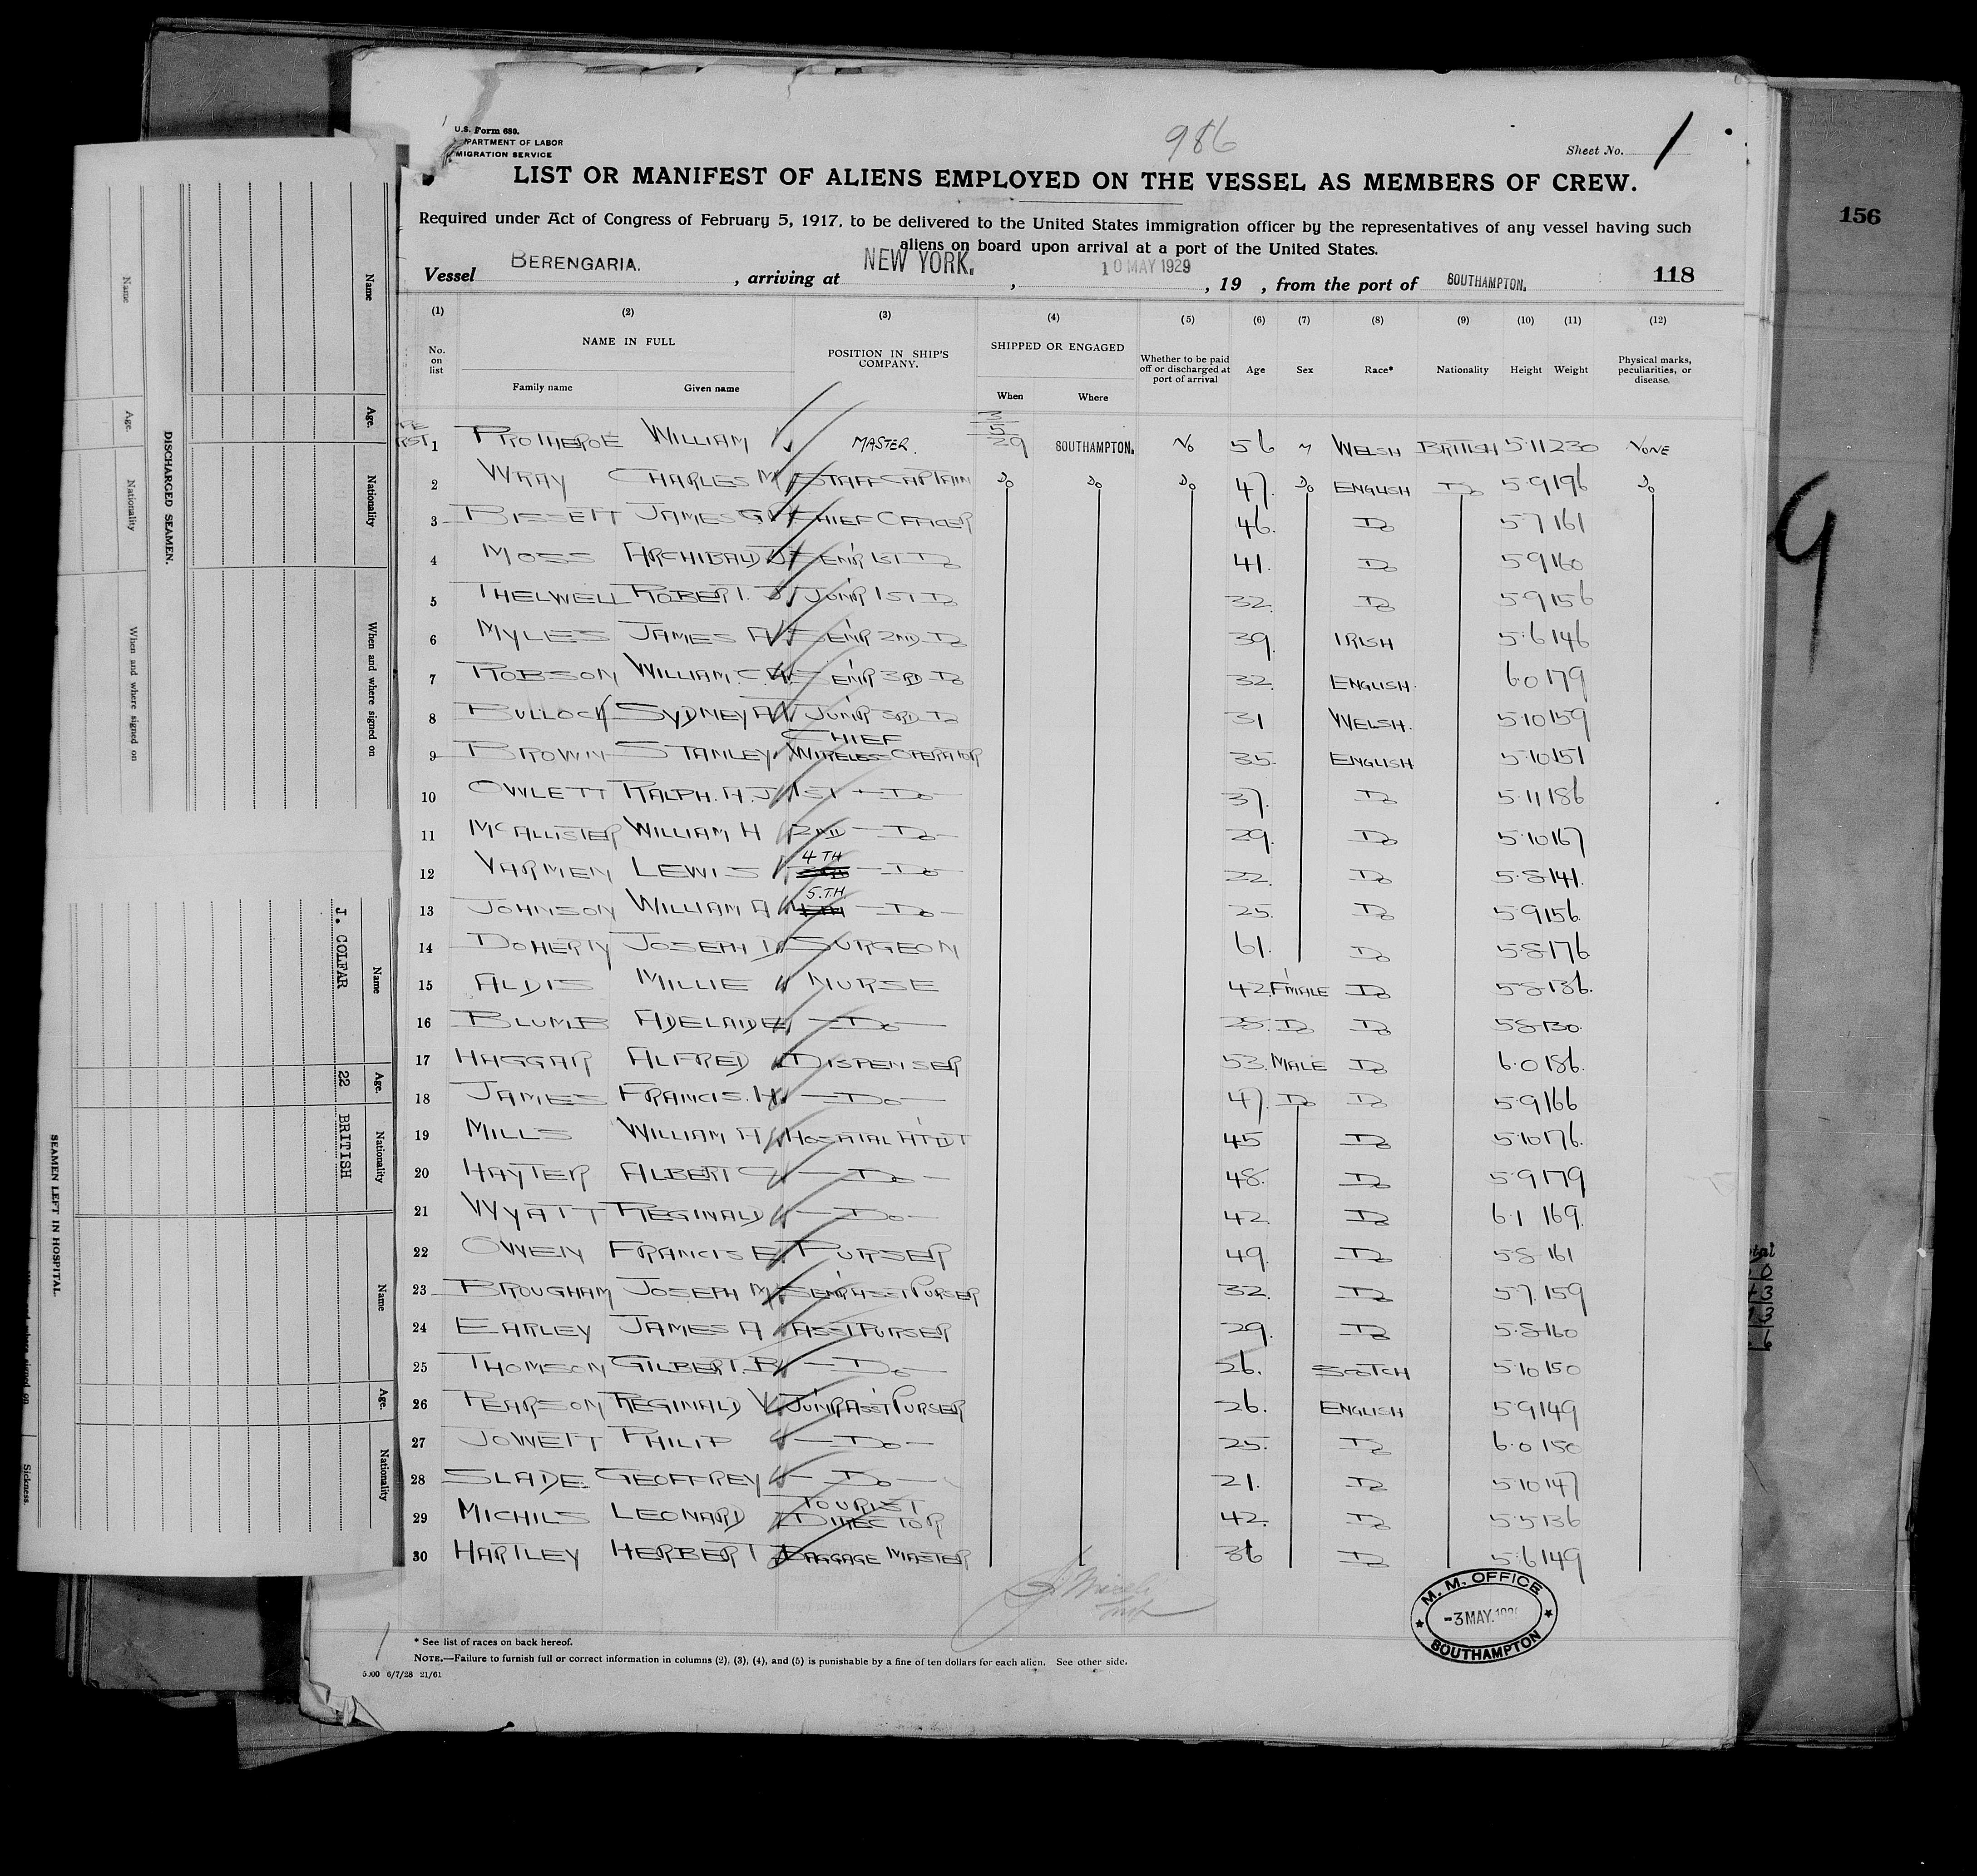 U.S. Form 680.
DEPARTMENT OF LABOR
IMMIGRATION SERVICE
986
Sheet No. 1
LIST OR MANIFEST OF ALIENS EMPLOYED ON THE VESSEL AS MEMBERS OF CREW.
Required under Act of Congress of February 5, 1917, to be delivered to the United States immigration officer by the representatives of any vessel having such
aliens on board upon arrival at a port of the United States.
Vessel BERENGARIA. , arriving at NEW YORK. , 10 MAY 1929 , 19 , from the port of SOUTHAMPTON. 118
(1) (2) (3) (4) (5) (6) (7) (8) (9) (10) (11) (12)
No. on list NAME IN FULL POSITION IN SHIP'S COMPANY. SHIPPED OR ENGAGED Whether to be paid off or discharged at port of arrival Age Sex Race* Nationality Height Weight Physical marks, peculiarities, or disease.
Family name Given name When Where
1 PROTHEROE WILLIAM MASTER. 3/5/29 SOUTHAMPTON. No 56 M WELSH BRITISH 5·11 230 NONE
2 WRAY CHARLES M STAFF CAPTAIN Do Do Do 47. Do ENGLISH Do 5·9 196 Do
3 BISSETT JAMES G CHIEF OFFICER 46. Do 5·7 161
4 MOSS ARCHIBALD J SENR 1ST Do 41. Do 5·9 160
5 THELWELL ROBERT. J JUNR 1ST Do 32. Do 5·9 156
6 MYLES JAMES A SENR 2ND Do 39. IRISH 5·6 146
7 ROBSON WILLIAM. C. SENR 3RD Do 32. ENGLISH. 6·0 179
8 BULLOCK SYDNEY A JUNR 3RD Do 31 WELSH. 5·10 159
9 BROWN STANLEY CHIEF WIRELESS OPERATOR 35. ENGLISH 5·10 151
10 OWLETT RALPH. A. J 1ST — Do — 37. Do 5·11 186
11 MCALLISTER WILLIAM H 2ND — Do — 29. Do 5·10 167
12 VARMEN LEWIS 4TH — Do — 22. Do 5·8 141.
13 JOHNSON WILLIAM A 5.TH — Do — 25. Do 5·9 156.
14 DOHERTY JOSEPH D SURGEON 61. Do 5·8 176
15 ALDIS MILLIE NURSE 42. FMALE Do 5·8 136.
16 BLUMB ADELAIDE — Do — 28. Do Do 5·8 130.
17 HAGGAR ALFRED DISPENSER 53. MALE Do 6·0 186.
18 JAMES FRANCIS. H — Do — 47. Do Do 5·9 166
19 MILLS WILLIAM A HOSPITAL ATDT 45 Do 5·10 176.
20 HAYTER ALBERT C — Do — 48. Do 5·9 179
21 WYATT REGINALD — Do — 42. Do 6·1 169.
22 OWEN FRANCIS E PURSER 49. Do 5·8 161
23 BROUGHAM JOSEPH M SENR ASST PURSER 32. Do 5·7. 159
24 EARLEY JAMES A ASST PURSER 29. Do 5·8 160
25 THOMSON GILBERT. B — Do — 26. SCOTCH 5·10 150
26 PEARSON REGINALD V JUNR ASST PURSER 26. ENGLISH 5·9 149
27 JOWETT PHILIP — Do — 25. Do 6·0 150
28 SLADE GEOFFREY — Do — 21. Do 5·10 147
29 MICHILS LEONARD TOURIST DIRECTOR 42. Do 5·5 136
30 HARTLEY HERBERT BAGGAGE MASTER 36 Do 5·6 149
M. M. OFFICE
-3 MAY. 192
SOUTHAMPTON
* See list of races on back hereof.
NOTE.—Failure to furnish full or correct information in columns (2), (3), (4), and (5) is punishable by a fine of ten dollars for each alien. See other side.
5000 6/7/28 21/61
156
9
DISCHARGED SEAMEN.
Name Age. Nationality When and where signed on
Name Age. Nationality When and where signed on
SEAMEN LEFT IN HOSPITAL.
Name Age. Nationality Name Age. Nationality
J. COLFAR 22 BRITISH
Sickness.